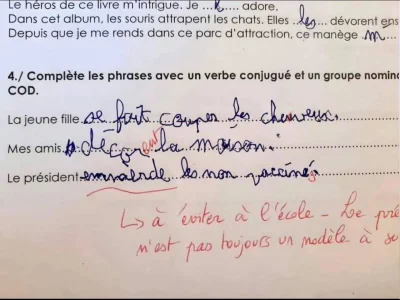 Le héros de ce livre m'intrigue. Je ...l'.... adore.
Dans cet album, les souris attrapent les chats. Elles ..les.. dévorent ens
Depuis que je me rends dans ce parc d'attraction, ce manège .m'...
4./ Complète les phrases avec un verbe conjugué et un groupe nomin
COD.
La jeune fille se fait couper les cheveux.
Mes amis décorent la maison.
Le président emmerde les non vaccinés
↳ à éviter à l'école - Le pré
n'est pas toujours un modèle à su